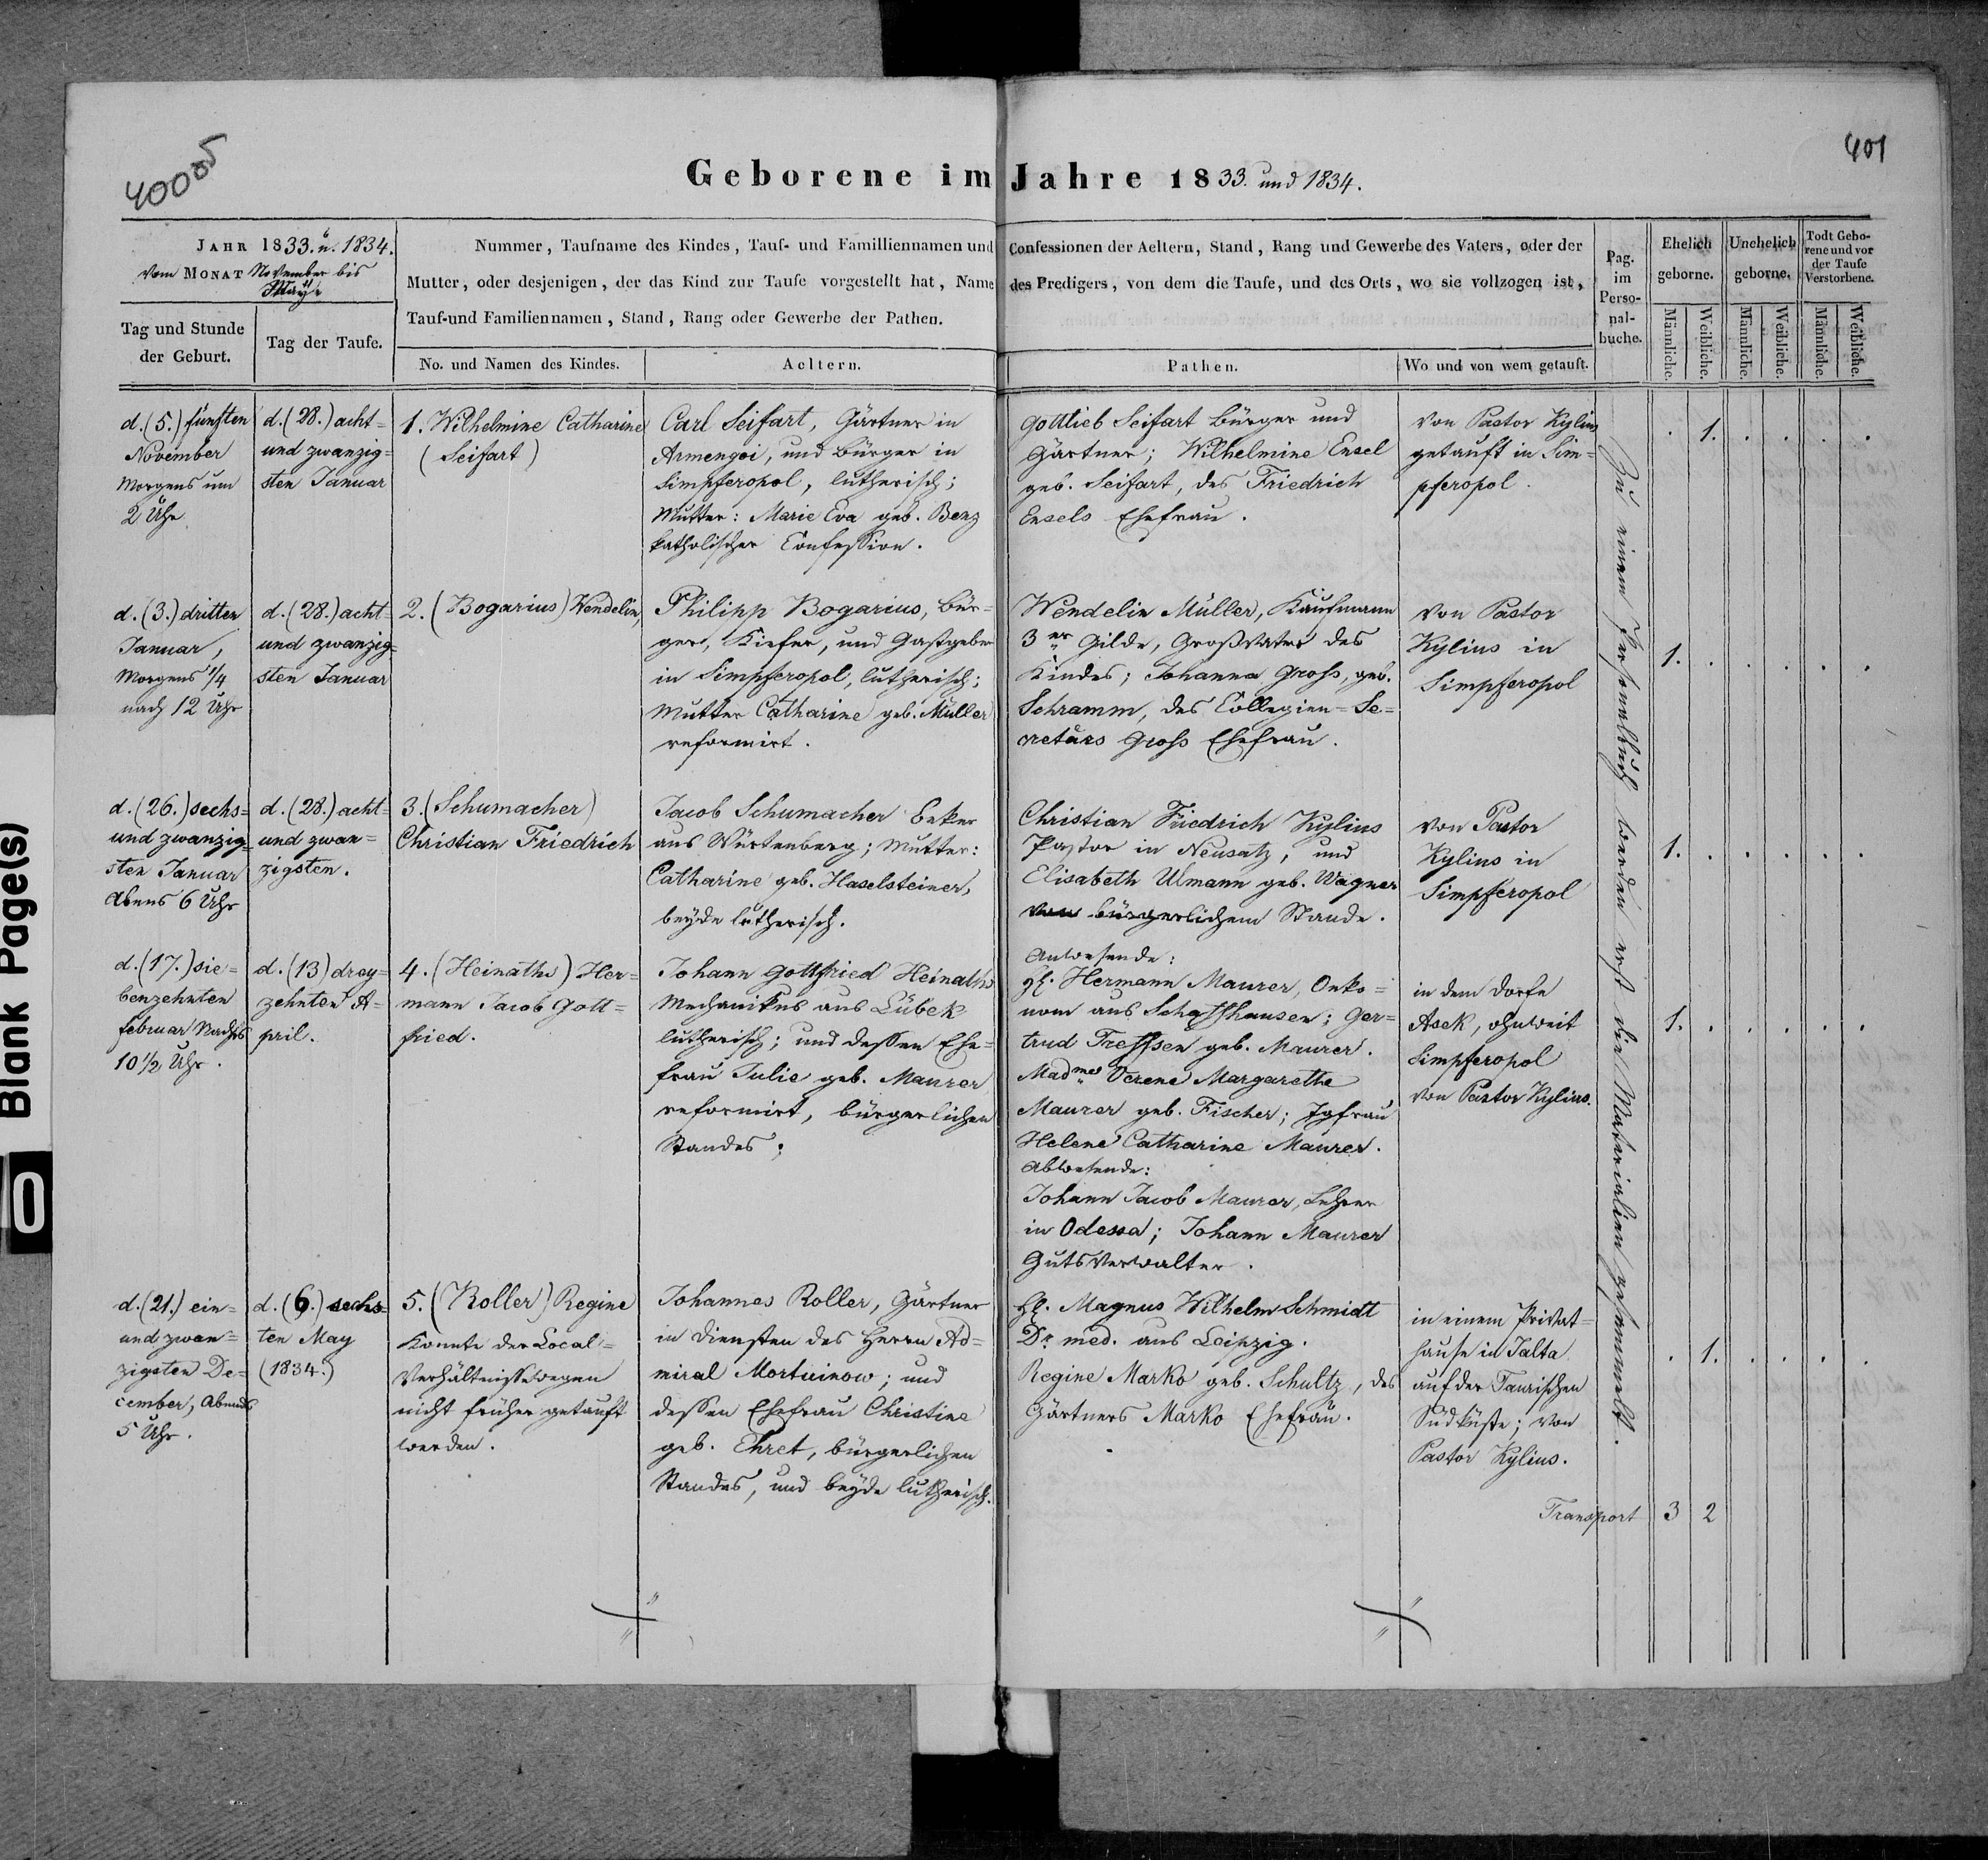 40005
401
Geborene im Jahre 1833. und 1834.
JAHR 1833. u. 1834.
vom MONAT November bis
May
Tag und Stunde
der Geburt.
Tag der Taufe.
Nummer, Taufname des Kindes, Tauf- und Familliennamen und Confessionen der Aeltern, Stand, Rang und Gewerbe des Vaters, oder der
Mutter, oder desjenigen, der das Kind zur Taufe vorgestellt hat, Name des Predigers, von dem die Taufe, und des Orts, wo sie vollzogen ist,
Tauf-und Familiennamen, Stand, Rang oder Gewerbe der Pathen.
No. und Namen des Kindes.
Aeltern.
Pathen.
Wo und von wem getauft.
Pag.
im
Perso-
nal-
buche.
Ehelich
geborne.
Unehelich
geborne.
Todt Gebo-
rene und vor
der Taufe
Verstorbene.
Männliche.
Weibliche.
Männliche.
Weibliche.
Männliche.
Weibliche.
d. (5.) fünften
November
Morgens um
2 Uhr
d. (28.) acht=
und zwanzig=
sten Januar
1. Wilhelmine Catharine
(Seifart)
Carl Seifart, Gärtner in
Armengoi, und Bürger in
Simpferopol, lutherisch;
Mutter: Marie Eva geb. Benz
katholischer Confession.
Gottlieb Seifart Bürger und
Gärtner; Wilhelmine Ensel
geb. Seifart, des Friedrich
Ensels Ehefrau.
Von Pastor Kylius
getauft in Sim=
pferopol.
. 1. . . . .
d. (3.) dritten
Januar,
Morgens 1/4
nach 12 Uhr
d. (28.) acht=
und zwanzig=
sten Januar
2. (Bogarius) Wendelin,
Philipp Bogarius, Bür=
ger, Kiefer, und Gastgeber
in Simpferopol, lutherisch;
Mutter Catharine geb. Müller
reformirt.
Wendelin Müller, Kaufmann
3er Gilde, Großvater des
Kindes; Johanna Groß, geb.
Schramm, des Collegien=Se=
cretärs Groß Ehefrau.
Von Pastor
Kylius in
Simpferopol
1. . . . . .
d. (26.) sechs=
und zwanzig=
sten Januar
Abens 6 Uhr
d. (28.) acht=
und zwan=
zigsten.
3. (Schumacher)
Christian Friedrich
Jacob Schumacher Beker
aus Würtenberg; Mutter:
Catharine geb. Haselsteiner,
beyde lutherisch.
Christian Friedrich Kylius
Pastor in Neusatz, und
Elisabeth Ulmann geb. Wagner
von bürgerlichem Stande.
Von Pastor
Kylius in
Simpferopol
1. . . . . .
d. (17.) sie=
benzehnten
Februar Nachts
10 1/2 Uhr.
d. (13) drey=
zehnten A=
pril.
4. (Heinaths) Her=
mann Jacob Gott=
fried.
Johann Gottfried Heinaths
Mechanikus aus Lübek
lutherisch; und dessen Ehe=
frau Julie geb. Maurer
reformirt, bürgerlichen
Standes;
Anwesende:
H. Hermann Maurer, Oeko=
nom aus Schaffhausen; Ger=
trud Treffsen geb. Maurer.
Madme Verene Margarethe
Maurer geb. Fischer; Jgfrau
Helene Catharine Maurer.
Abwesende:
Johann Jacob Maurer, Lehrer
in Odessa; Johann Maurer
Gutsverwalter.
in dem Dorfe
Asek, ohnweit
Simpferopol
von Pastor Kylius.
1. . . . . .
d. (21.) ein=
und zwan=
zigsten De=
cember, Abends
5 Uhr.
d. (6.) sechs=
ten May
(1834.)
5. (Roller) Regine
Konnte der Local=
Verhältnisse wegen
nicht früher getauft
werden.
Johannes Roller, Gärtner
in Diensten des Herrn Ad=
miral Mortwinow; und
dessen Ehefrau Christine
geb. Ehret, bürgerlichen
Standes, und beyde lutherisch.
H. Magnus Wilhelm Schmidt
Dr. med. aus Leipzig.
Regine Marko geb. Schultz, des
Gärtners Marko Ehefrau.
in einem Privat=
hause in Jalta
auf der Taurischen
Südküste; von
Pastor Kylius.
. 1. . . . .
Zu einem Personalbuch werden erst die Materialien gesammelt.
Transport 3 2
Blank Page(s)
0